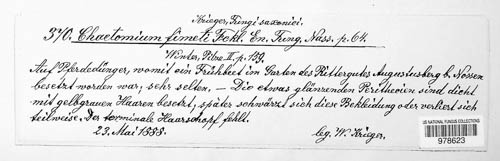 Krieger, Fungi saxonici.
370. Chaetomium fimeti Fckl. En. Fung. Nass. p. 64.
Winter, Pilze II. p. 159.
Auf Pferdedünger, womit ein Frühbeet im Garten des Rittergutes Augustusberg b. Nossen
besetzt worden war, sehr selten. — Die etwas glänzenden Perithecien sind dicht
mit gelbgrauen Haaren besetzt, später schwärzt sich diese Bekleidung oder verliert sich
teilweise. Der terminale Haarschopf fehlt.
23. Mai 1888. leg. W. Krieger.
US NATIONAL FUNGUS COLLECTIONS
978623